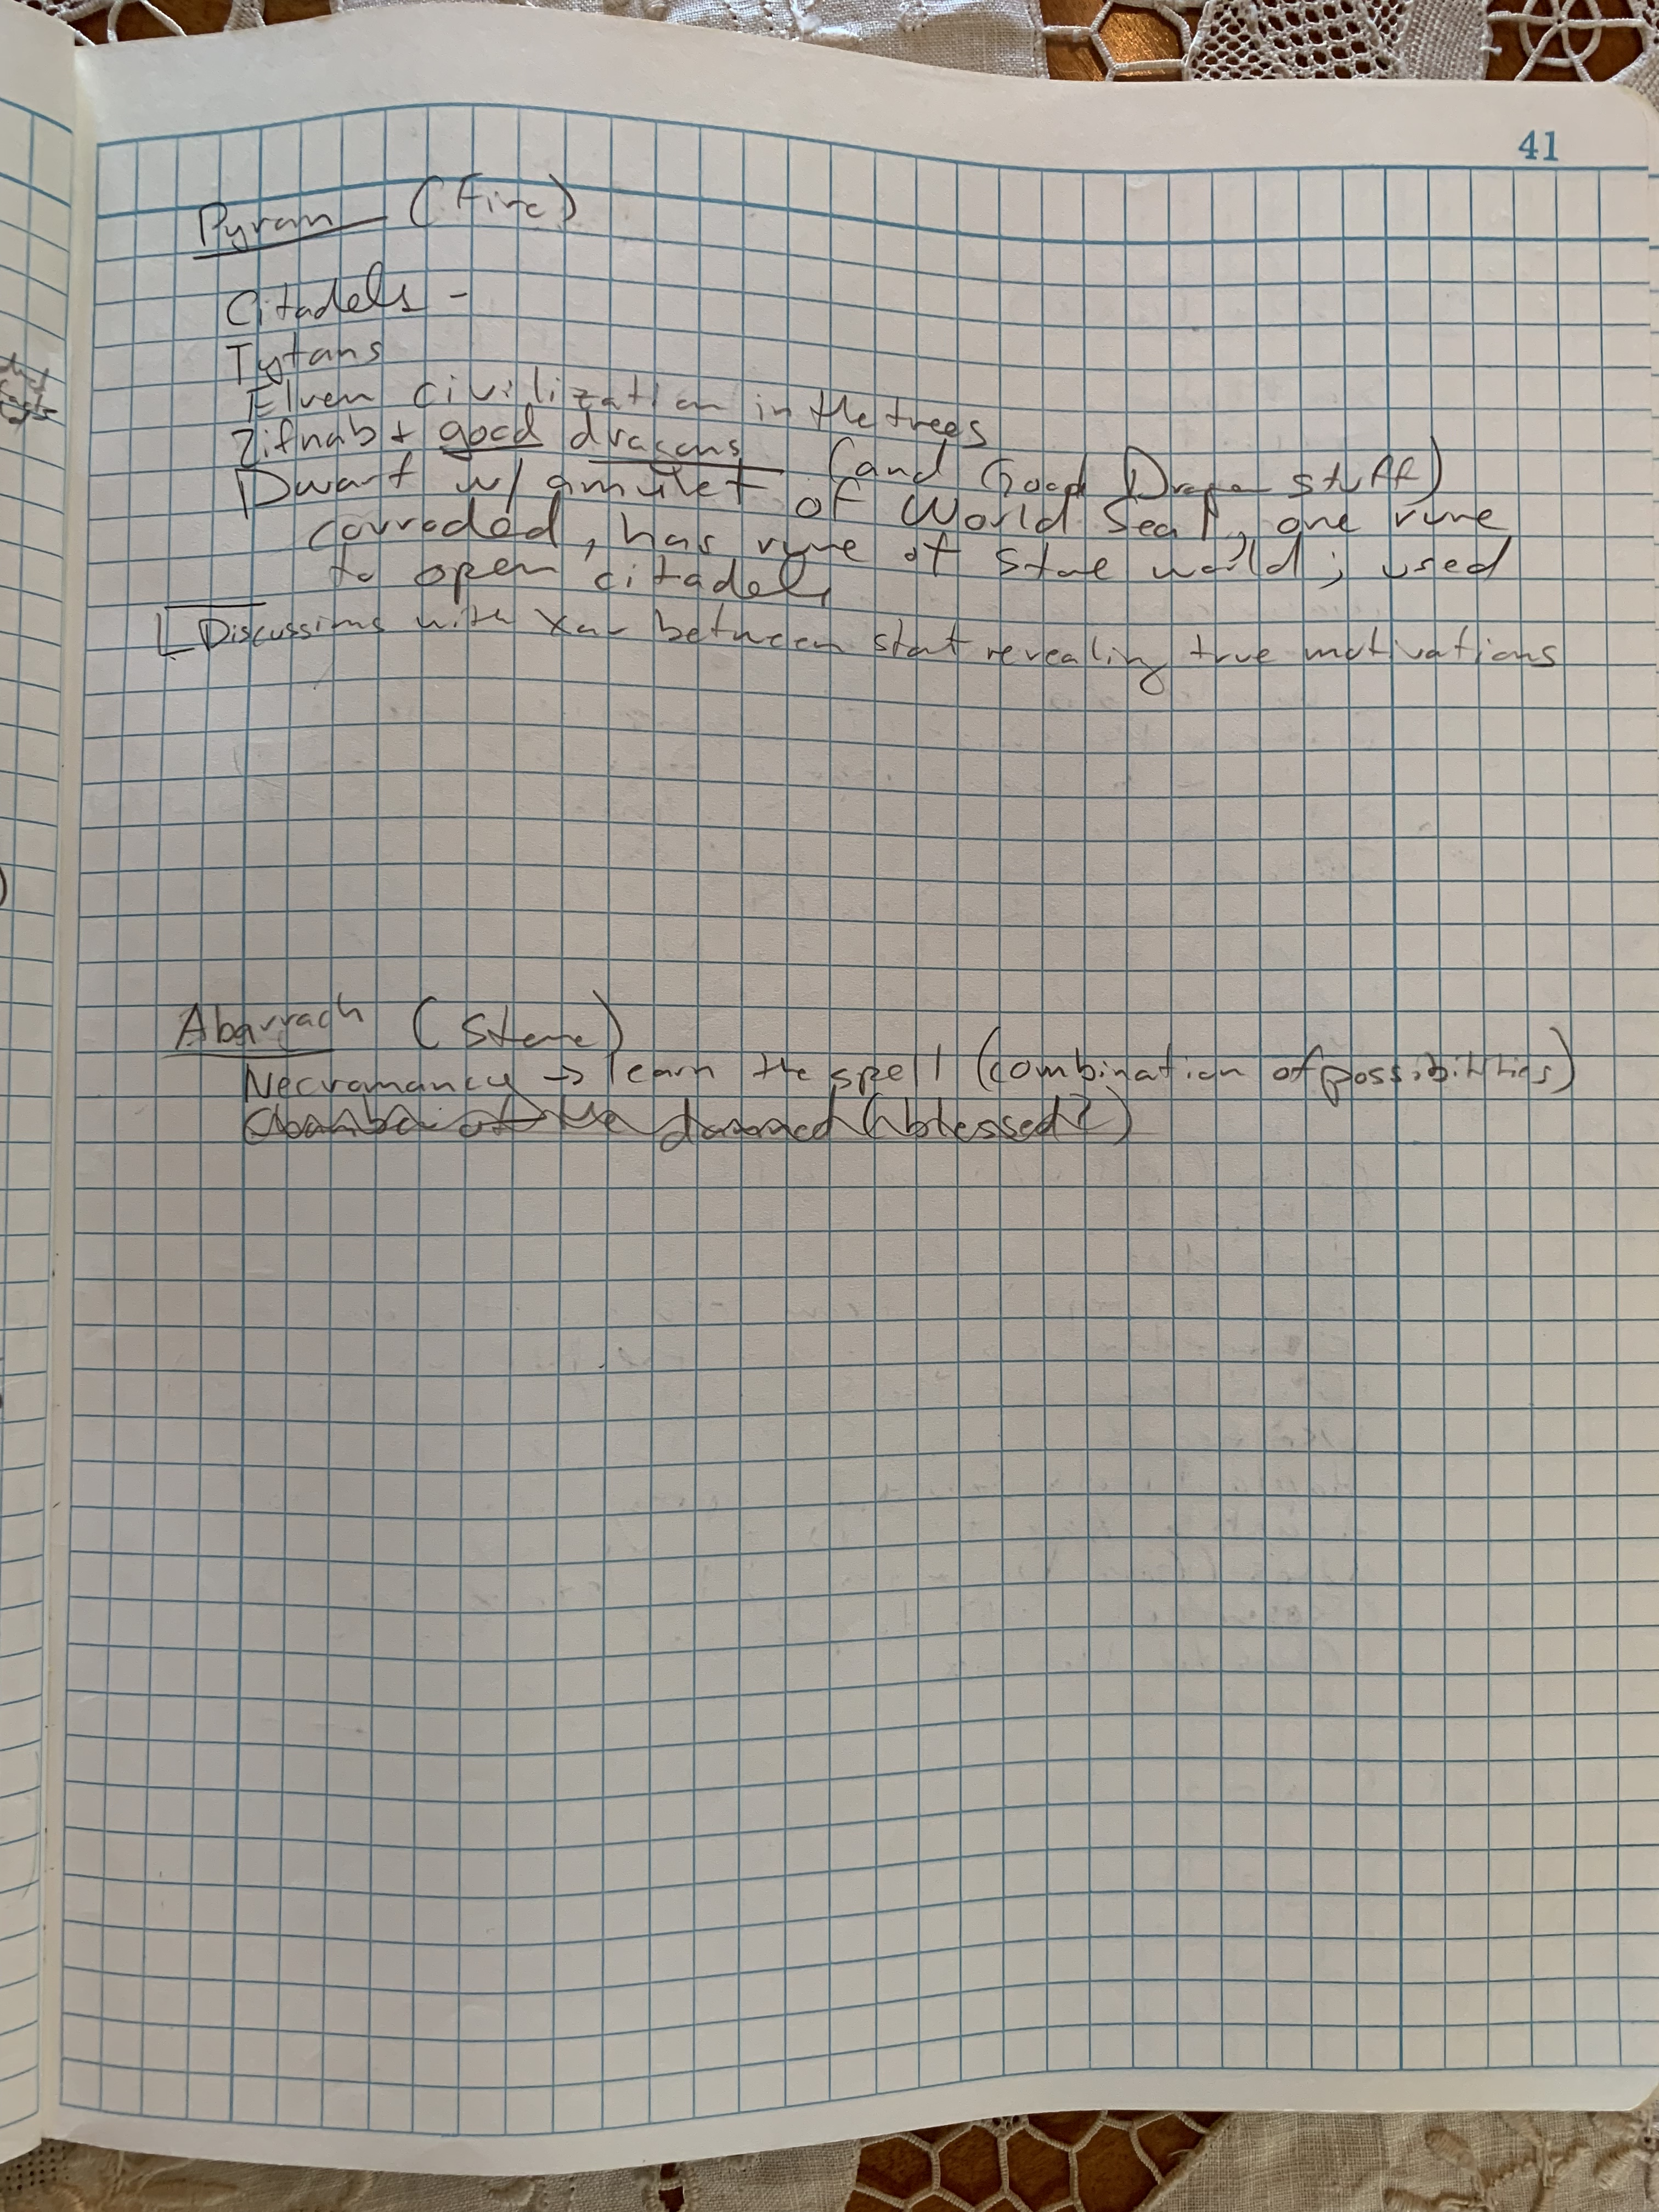 41
Pyran (Fire)
Citadels -
Tytans
Elven civilization in the trees
Zifnab + good dragons (and Good Dragon stuff)
Dwarf w/ amulet of World Seal, one rune
corroded, has rune of stone world; used
to open citadels
Discussions with Xar between start revealing true motivations
Abarrach (Stone)
Necromancy → learn the spell (combination of possibilities)
Chamber of the damned (blessed?)